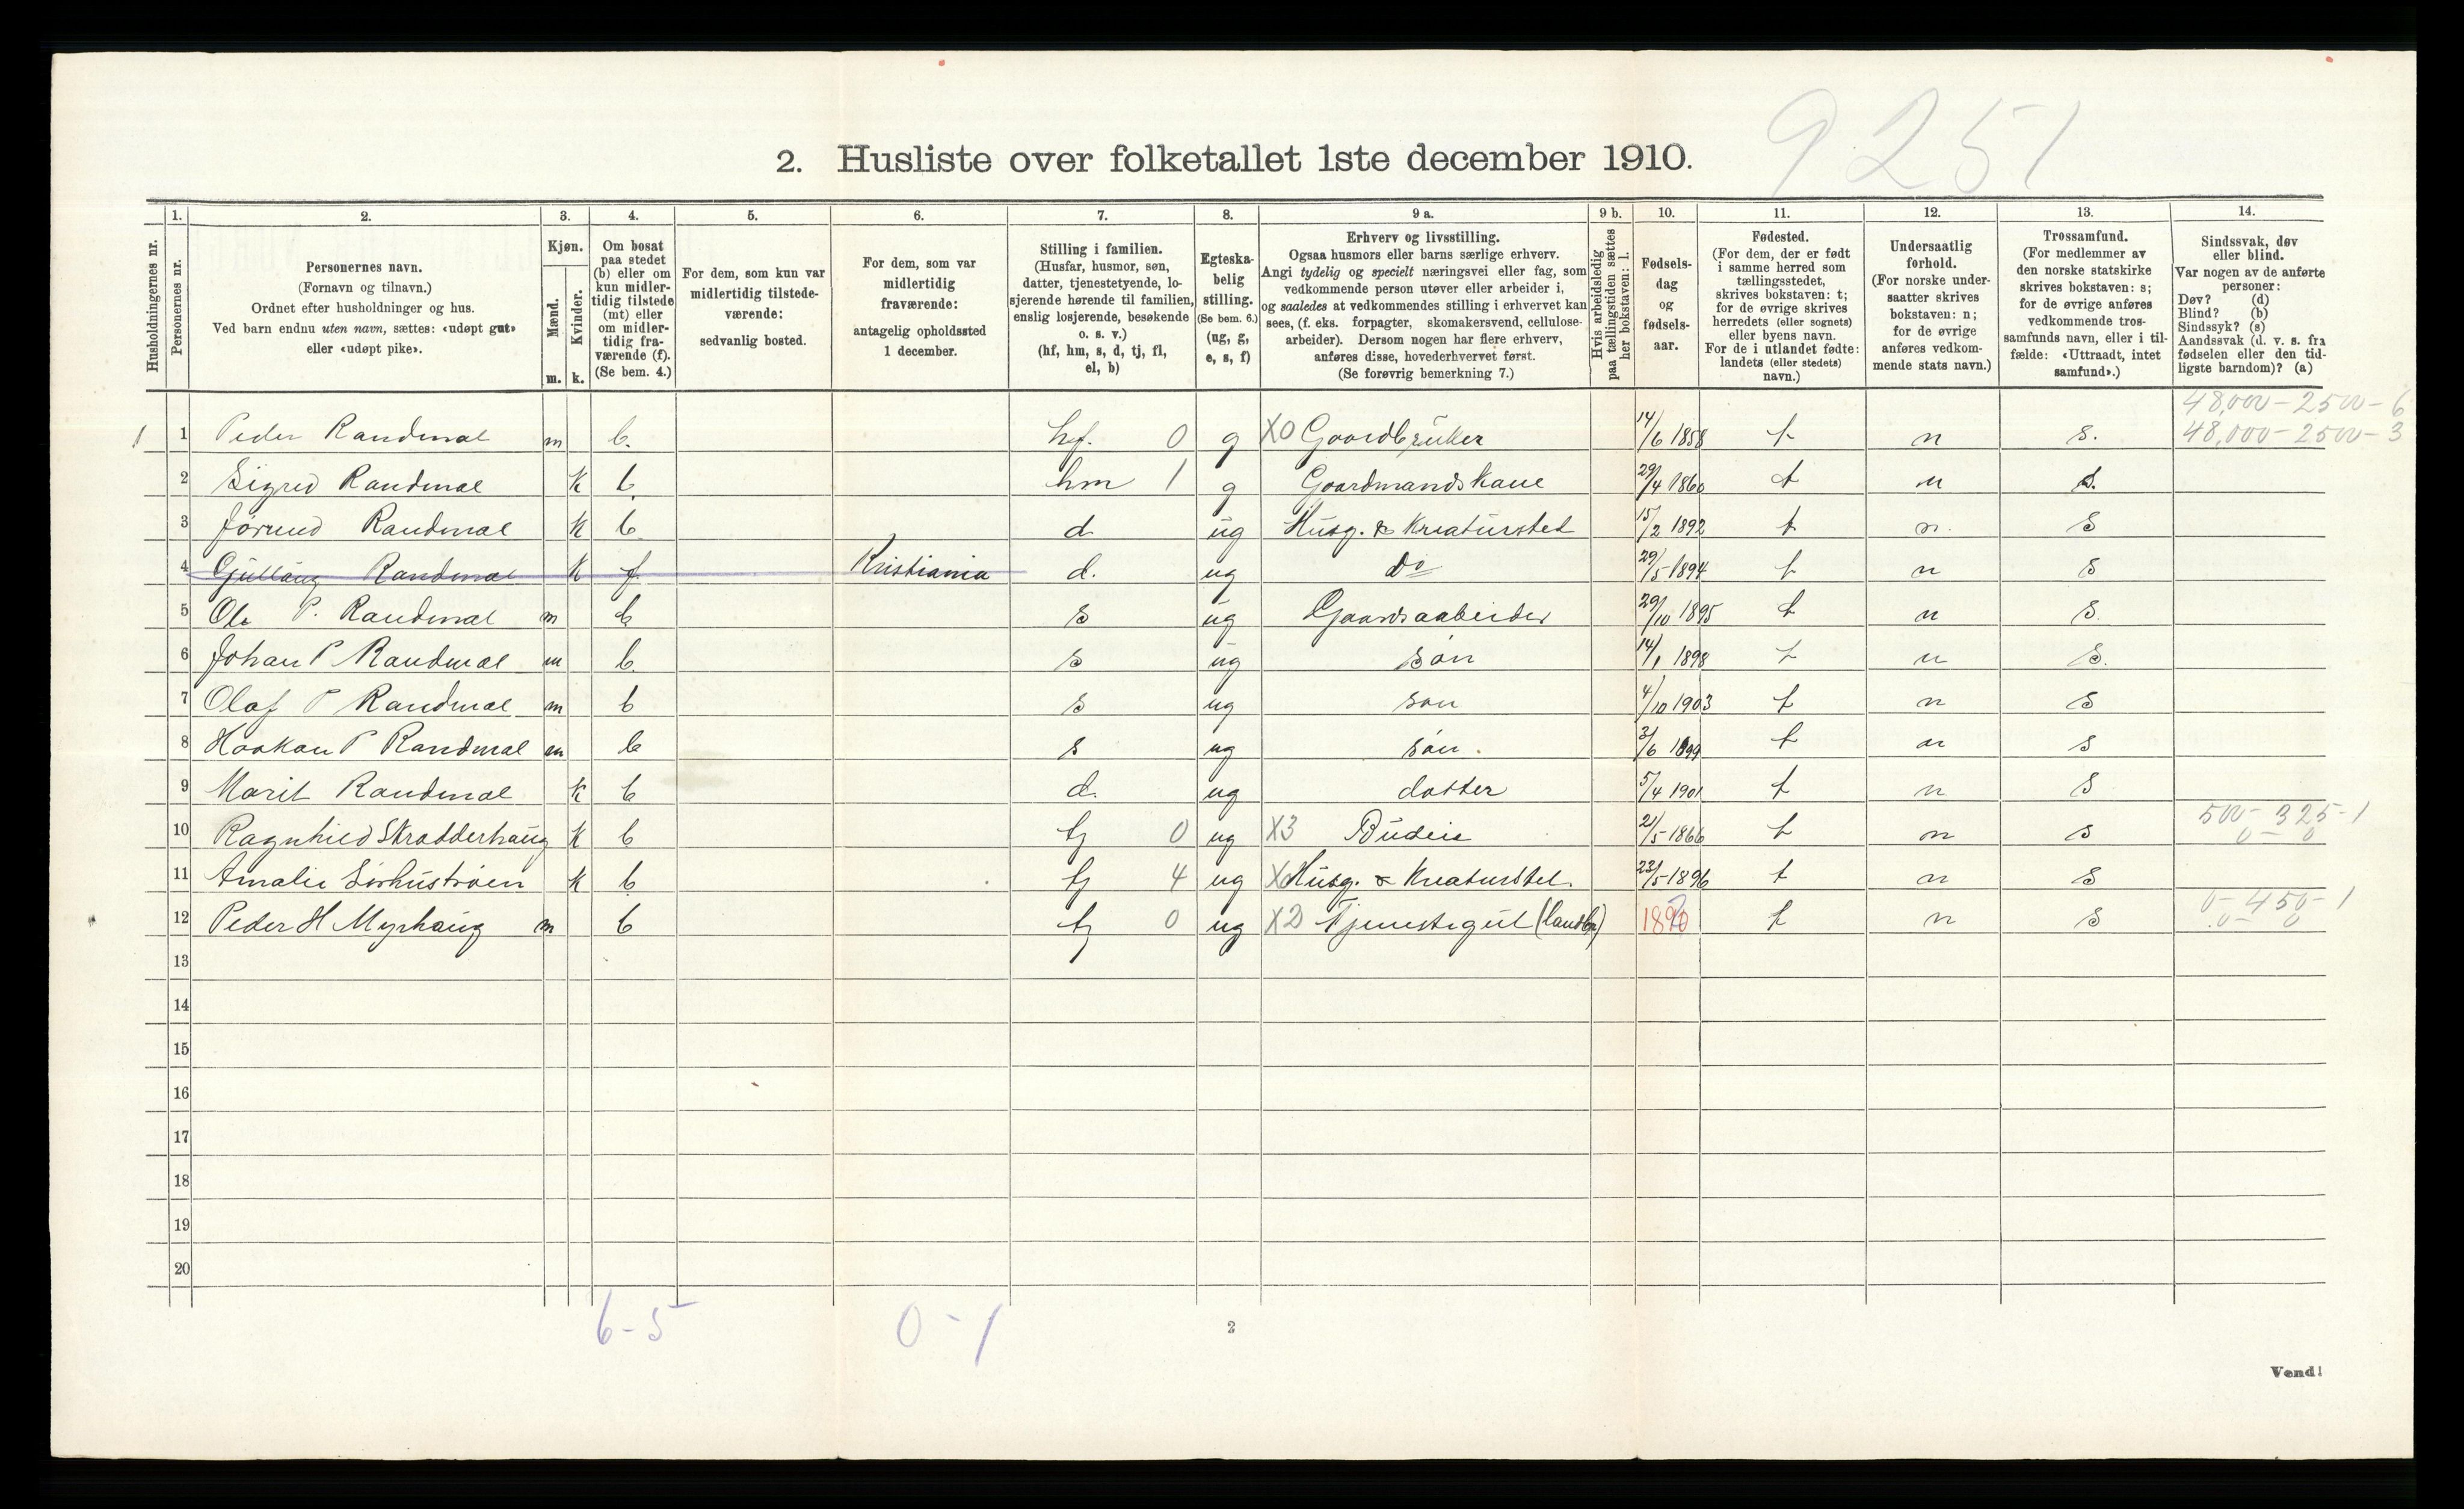 9251
2. Husliste over folketallet 1ste december 1910.
Husholdningernes nr.
1. Personernes nr.
2. Personernes navn.
(Fornavn og tilnavn.)
Ordnet efter husholdninger og hus.
Ved barn endnu uten navn, sættes: «udøpt gut»
eller «udøpt pike».
3. Kjøn.
Mænd. m.
Kvinder. k.
4. Om bosat
paa stedet
(b) eller om
kun midler-
tidig tilstede
(mt) eller
om midler-
tidig fra-
værende (f).
(Se bem. 4.)
5. For dem, som kun var
midlertidig tilstede-
værende:
sedvanlig bosted.
6. For dem, som var
midlertidig
fraværende:
antagelig opholdssted
1 december.
7. Stilling i familien.
(Husfar, husmor, søn,
datter, tjenestetyende, lo-
sjerende hørende til familien,
enslig losjerende, besøkende
o. s. v.)
(hf, hm, s, d, tj, fl,
el, b)
8. Egteska-
belig
stilling.
(Se bem. 6.)
(ug, g,
e, s, f)
9 a. Erhverv og livsstilling.
Ogsaa husmors eller barns særlige erhverv.
Angi tydelig og specielt næringsvei eller fag, som
vedkommende person utøver eller arbeider i,
og saaledes at vedkommendes stilling i erhvervet kan
sees, (f. eks. forpagter, skomakersvend, cellulose-
arbeider). Dersom nogen har flere erhverv,
anføres disse, hovederhvervet først.
(Se forøvrig bemerkning 7.)
9 b. Hvis arbeidsledig
paa tællingstiden sættes
her bokstaven: l.
10. Fødsels-
dag
og
fødsels-
aar.
11. Fødested.
(For dem, der er født
i samme herred som
tællingsstedet,
skrives bokstaven: t;
for de øvrige skrives
herredets (eller sognets)
eller byens navn.
For de i utlandet fødte:
landets (eller stedets)
navn.)
12. Undersaatlig
forhold.
(For norske under-
saatter skrives
bokstaven: n;
for de øvrige
anføres vedkom-
mende stats navn.)
13. Trossamfund.
(For medlemmer av
den norske statskirke
skrives bokstaven: s;
for de øvrige anføres
vedkommende tros-
samfunds navn, eller i til-
fælde: «Uttraadt, intet
samfund».)
14. Sindssvak, døv
eller blind.
Var nogen av de anførte
personer:
Døv? (d)
Blind? (b)
Sindssyk? (s)
Aandssvak (d. v. s. fra
fødselen eller den tid-
ligste barndom)? (a)
48,000-2500-6
1 1 Peder Randmæl m b. hf. 0 g X0 Gaardbruker 14/6 1858 t n s. 48,000-2500-3
2 Sigred Randmæl k b hm 1 g Gaardmandskone 29/4 1860 t n s.
3 Jørund Randmæl k b d ug Husg. & Kreaturstel 15/2 1892 t n. s
4 Gjullaug Randmæl k f Kristiania d. ug Do 29/5 1894 t n s
5 Ole P. Randmæl m b s ug Gaardsaabeider 29/10 1895 t n s.
6 Johan P Randmæl m b s ug søn 14/1 1898 t n s.
7 Olaf P Randmæl m b s ug søn 4/10 1903 t n s
8 Haakon P Randmæl m b s ug søn. 3/6 1899 t n s
9 Marit Randmæl k b d. ug datter 5/4 1901 t n s
10 Ragnhild Skradderhaug k b tj 0 ug X3 Budeie 21/5 1866 t n s 500-325-1
0-0
11 Amalie Sørhustrøen k b tj 4 ug X Husg. & Kreaturstel. 23/5 1896 t n s
12 Peder H Myrhaug m b tj 0 ug X2 Tjenestegut (landbr) t n s 0-450-1
0-0
13
14
15
16
17
18
19
20
6-5 0-1
2
Vend!